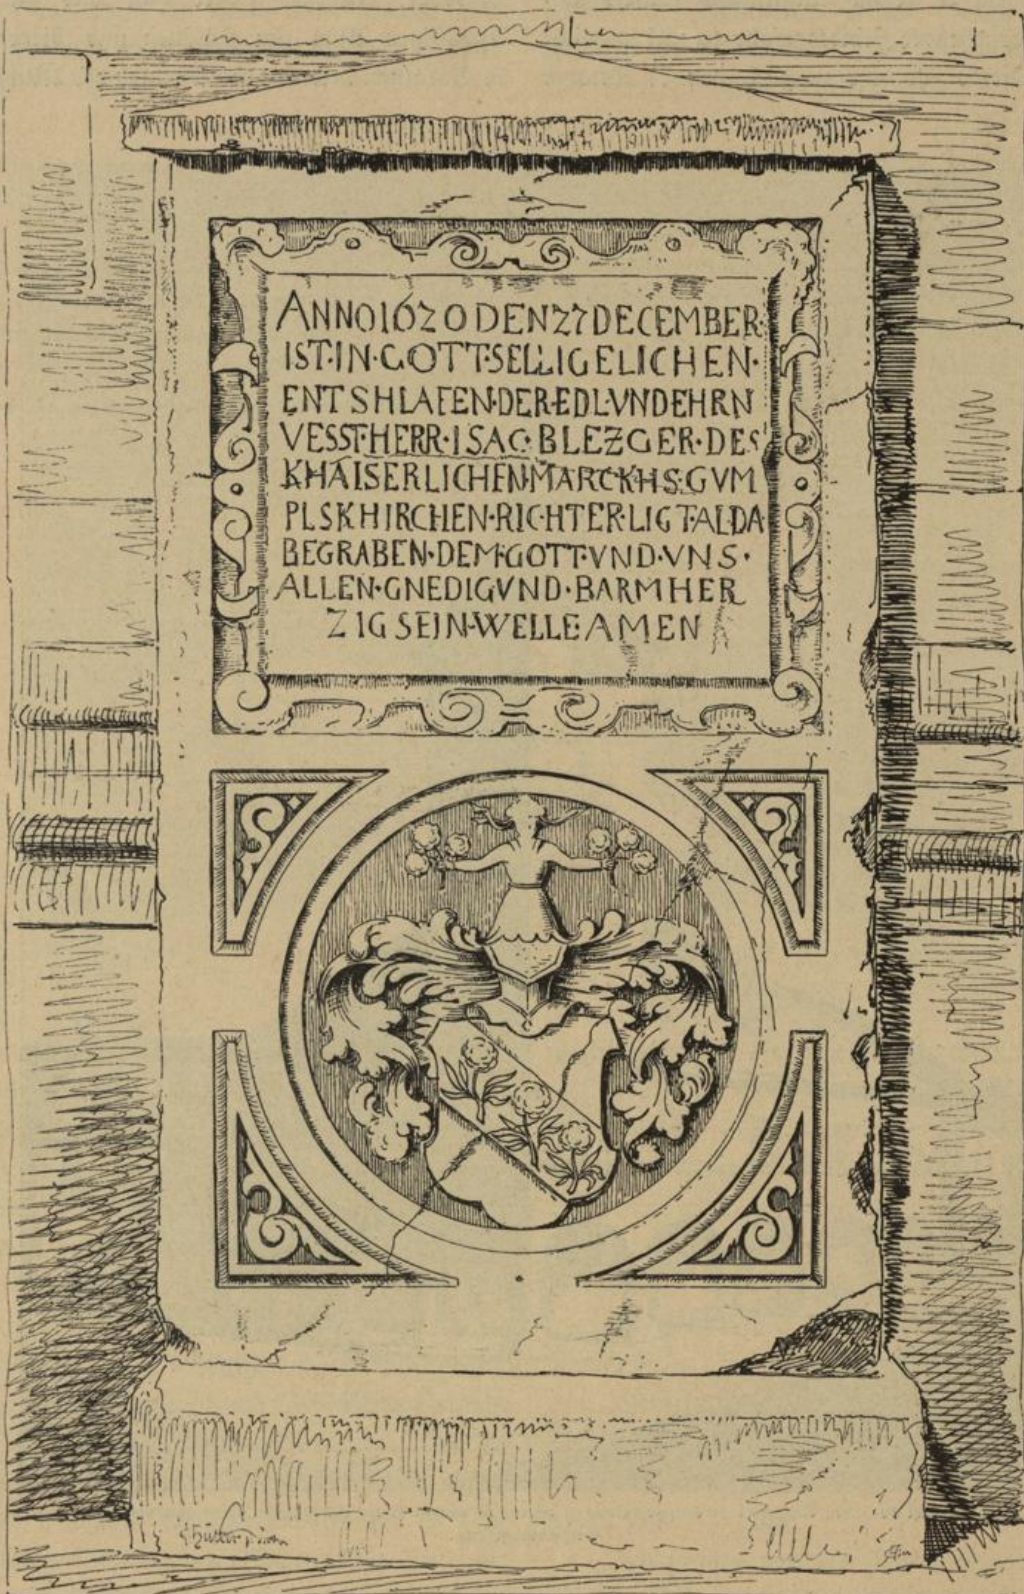 ANNO1620DEN27DECEMBER
IST·IN·GOTT·SELLIGELICHEN·
ENTSHLAFEN·DER·EDL·VNDEHRN
VESST·HERR·ISAC·BLEZGER·DES
KHAISERLICHEN·MARCKHS·GVM
PLSKHIRCHEN·RICHTER·LIGT·ALDA
BEGRABEN·DEM·GOTT·VND·VNS·
ALLEN·GNEDIGVND·BARMHER
ZIG SEIN·WELLE AMEN